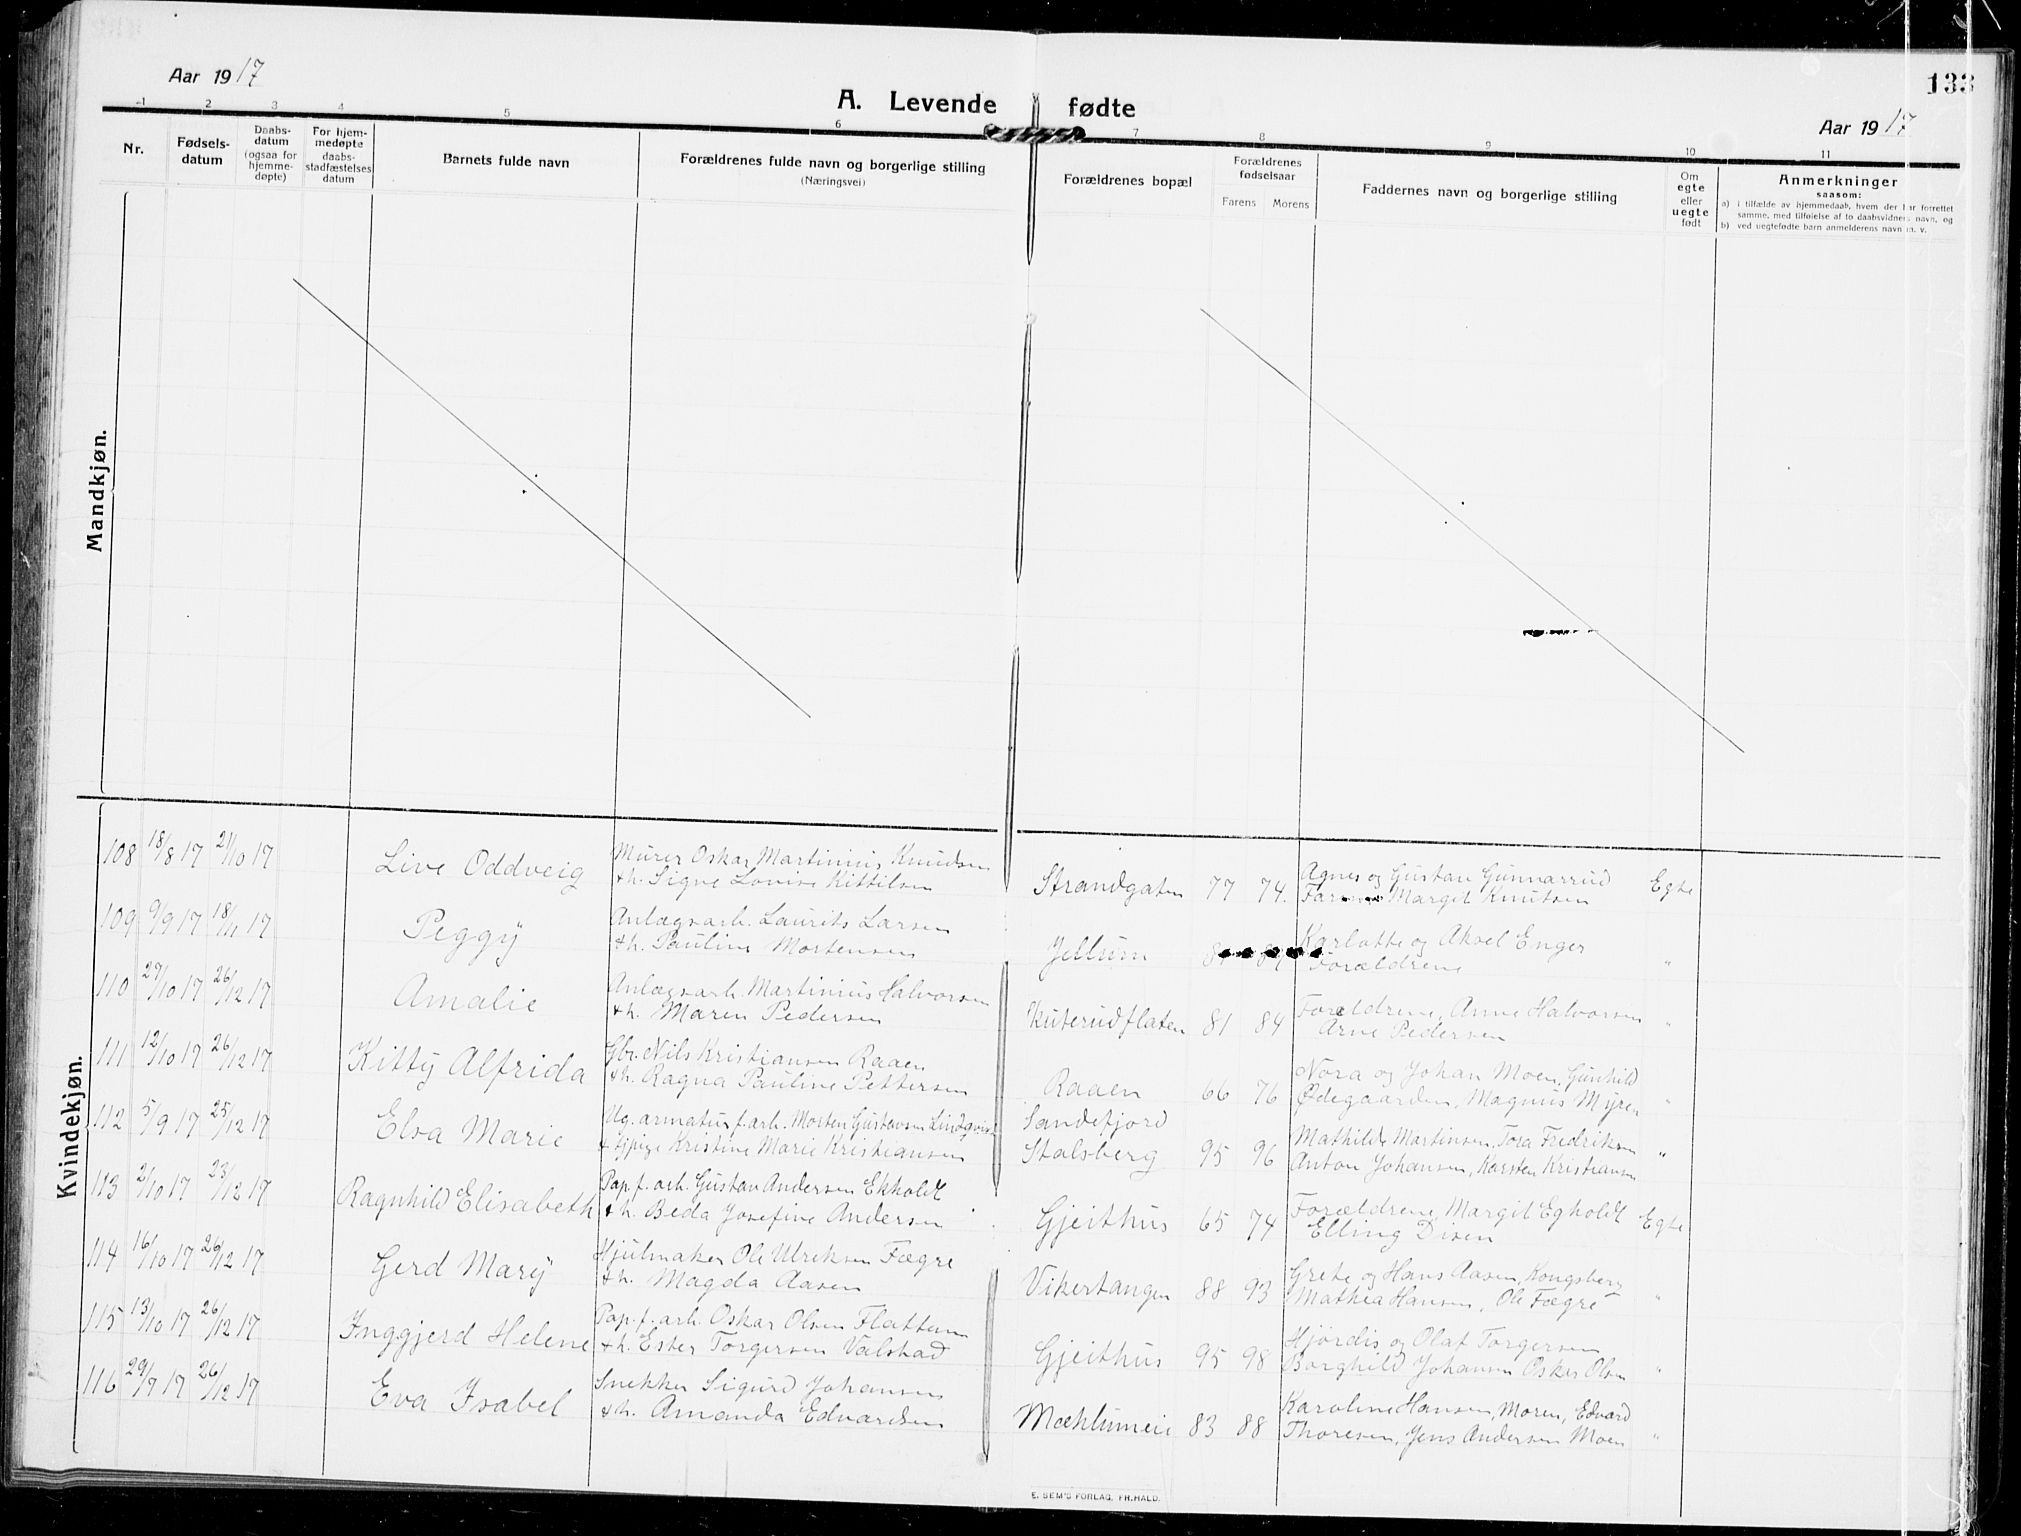 Aar 1917
A. Levende fødte
133
Aar 1917
1 2 3 4 5 6 7 8 9 10 11
Nr.
Fødsels-
datum
Daabs-
datum
(ogsaa for
hjemme-
døpte)
For hjem-
medøpte
daabs-
stadfæstelses
datum
Barnets fulde navn
Forældrenes fulde navn og borgerlige stilling
(Næringsvei)
Forældrenes bopæl
Forældrenes
fødselsaar
Farens Morens
Faddernes navn og borgerlige stilling
Om
egte
eller
uegte
født
Anmerkninger
saasom:
a) i tilfælde av hjemmedaab, hvem der har forrettet
samme, med tilføielse af to daabsvidners navn, og
b) ved uegtefødte barn anmelderens navn m. v.
Mandkjøn.
Kvindekjøn.
108 18/8 17 21/10 17 Live Oddveig
Murer Oskar Martinius Knudsen
+ h. Signe Lovise Kittilsen
Strandgaten 77 74.
Agnes og Gustav Gunnarrud
Faren Margit Knutsen
Egte
109 9/9 17 18/11 17 Peggy
Anlægsarb. Laurits Larsen
+ h. Pauline Mortensen
Jellum
Karlotte og Aksel Enger
Forældrene
"
110 27/10 17 26/12 17 Amalie
Anlægsarb. Martinius Halvorsen
+ h. Maren Pedersen
Kuterudflaten 81 84
Forældrene, Anne Halvorsen
Arne Pedersen
"
111 12/10 17 26/12 17 Kitty Alfrida
Gbr. Nils Kristiansen Raaen
+ h. Ragna Pauline Pettersen
Raaen 66 76
Nora og Johan Moen, Gunhild
Ødegaarden, Magnus Myren
"
112 5/9 17 25/12 17 Elsa Marie
Ug. armatur f. arb. Morten Gustavsen Lindqvist
+ tjpige Kristine Marie Kristiansen
Sandefjord
Stalsberg 95 96
Mathilde Martinsen, Tora Fredriksen
Anton Johansen, Karsten Kristiansen
"
113 2/10 17 23/12 17 Ragnhild Elisabeth
Pap. f. arb. Gustav Andersen Ekholdt
+ h. Beda Josefine Andersen
Gjeithus 65 74
Forældrene, Margit Egholdt
Elling Disen
Egte
114 16/10 17 26/12 17 Gerd Mary
Hjulmaker Ole Ulriksen Fægre
+ h. Magda Aasen
Vikertangen 88 93
Grete og Hans Aasen, Kongsberg
Mathea Hansen, Ole Fægre
"
115 13/10 17 26/12 17 Inggjerd Helene
Pap. f. arb. Oskar Olsen Flattum
+ h. Ester Torgersen Valstad
Gjeithus 95 98
Hjørdis og Olaf Torgersen
Borghild Johansen Oskar Olsen
"
116 29/7 17 26/12 17 Eva Isabel
Snekker Sigurd Johansen
+ h. Amanda Edvardsen
Mæhlumeie 83 88
Karoline Hansen, Moren, Edvard
Thoresen, Jens Andersen Moen
"
E. SEM'S FORLAG, FR.HALD.